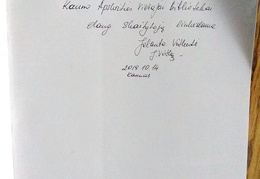 Kauno Apskrities Viešajai bibliotekai
daug skaitytojų linkėdama
Jolanta
2019.10.14
Kaunas